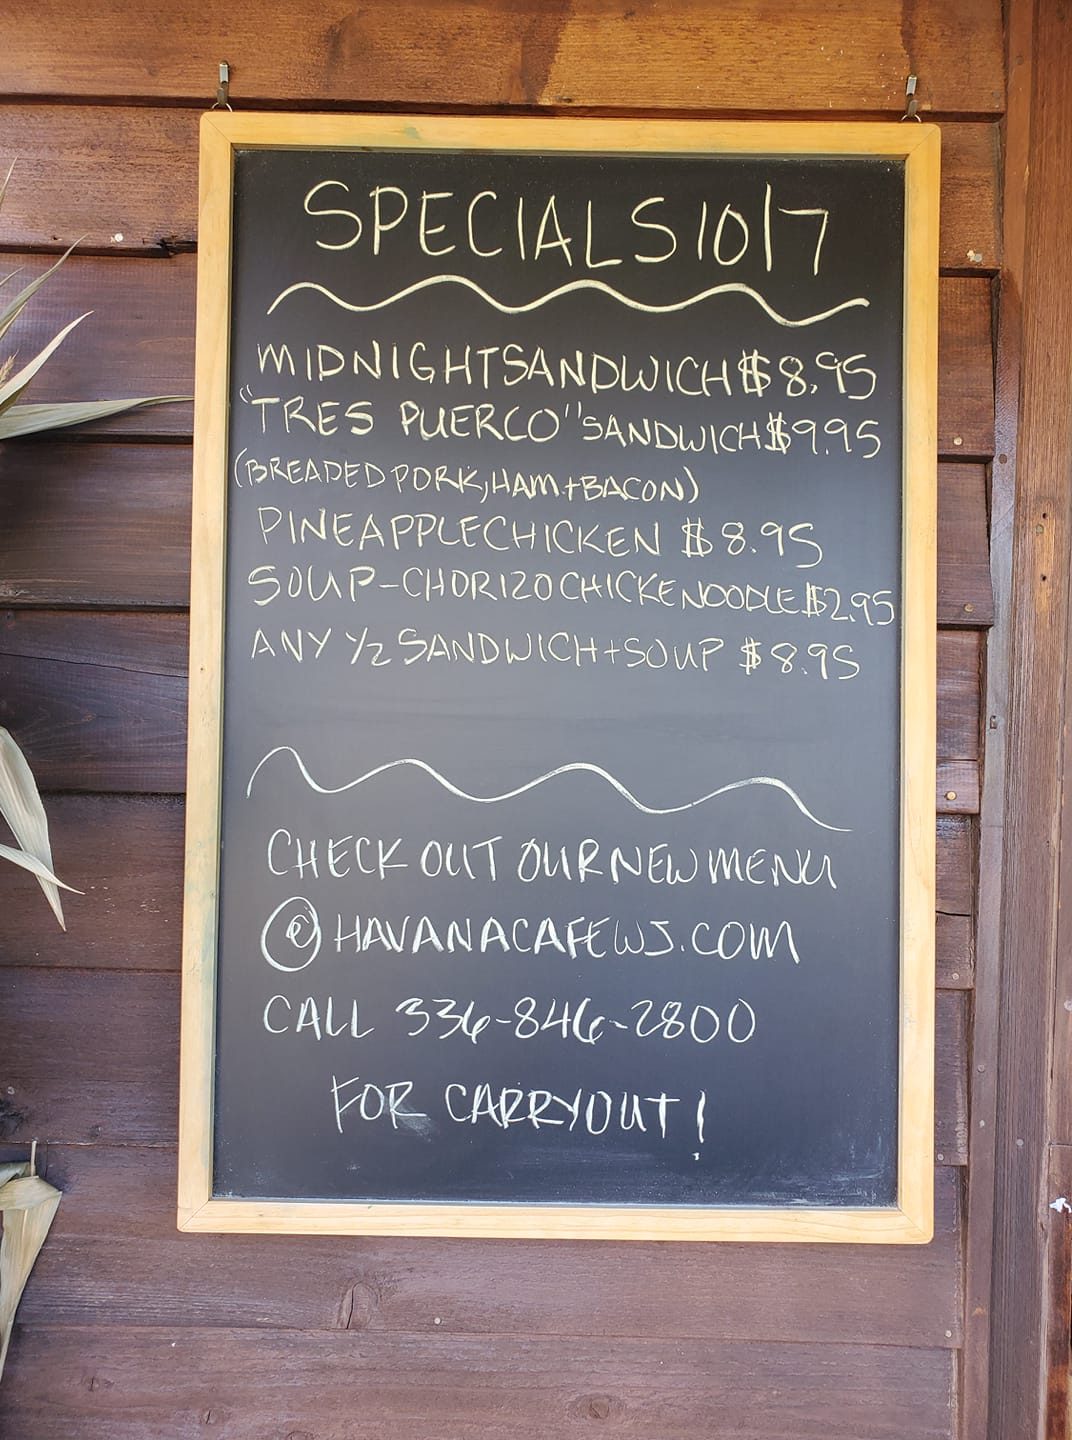 SPECIALS 10/7
MIDNIGHT SANDWICH $8.95
"TRES PUERCO" SANDWICH $9.95
(BREADED PORK, HAM + BACON)
PINEAPPLE CHICKEN $8.95
SOUP - CHORIZO CHICKE NOODLE $2.95
ANY 1/2 SANDWICH + SOUP $8.95
CHECK OUT OUR NEW MENU
@ HAVANACAFEWS.COM
CALL 336-846-2800
FOR CARRYOUT!